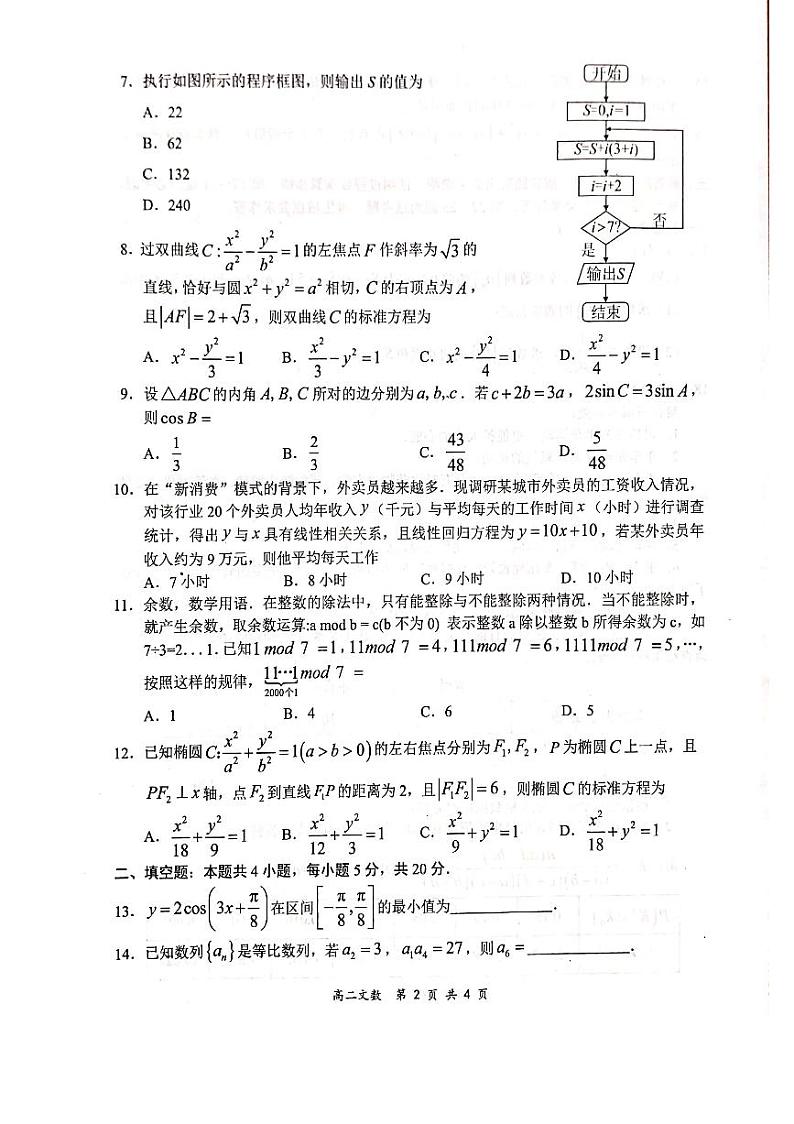 7．执行如图所示的程序框图，则输出 S 的值为
A．22
B．62
C．132
D．240
开始
S=0,i=1
S=S+i(3+i)
i=i+2
i>7?
否
是
输出S
结束
8．过双曲线 C : x²/a² − y²/b² = 1 的左焦点 F 作斜率为 √3 的
直线，恰好与圆 x² + y² = a² 相切，C 的右顶点为 A，
且 |AF| = 2 + √3，则双曲线 C 的标准方程为
A．x² − y²/3 = 1 B．x²/3 − y² = 1 C．x² − y²/4 = 1 D．x²/4 − y² = 1
9．设 △ABC 的内角 A, B, C 所对的边分别为 a, b, c．若 c + 2b = 3a，2sin C = 3sin A，
则 cos B =
A．1/3 B．2/3 C．43/48 D．5/48
10．在“新消费”模式的背景下，外卖员越来越多．现调研某城市外卖员的工资收入情况，
对该行业 20 个外卖员人均年收入 y（千元）与平均每天的工作时间 x（小时）进行调查
统计，得出 y 与 x 具有线性相关关系，且线性回归方程为 y = 10x + 10，若某外卖员年
收入约为 9 万元，则他平均每天工作
A．7 小时 B．8 小时 C．9 小时 D．10 小时
11．余数，数学用语．在整数的除法中，只有能整除与不能整除两种情况．当不能整除时，
就产生余数，取余数运算:a mod b = c(b 不为 0) 表示整数 a 除以整数 b 所得余数为 c，如
7÷3=2...1．已知 1 mod 7 = 1，11mod 7 = 4，111mod 7 = 6，1111mod 7 = 5，…，
按照这样的规律，11⋯1 mod 7 =
2000个1
A．1 B．4 C．6 D．5
12．已知椭圆 C: x²/a² + y²/b² = 1(a > b > 0) 的左右焦点分别为 F₁, F₂，P 为椭圆 C 上一点，且
PF₂ ⊥ x 轴，点 F₂ 到直线 F₁P 的距离为 2，且 |F₁F₂| = 6，则椭圆 C 的标准方程为
A．x²/18 + y²/9 = 1 B．x²/12 + y²/3 = 1 C．x²/9 + y² = 1 D．x²/18 + y² = 1
二、填空题：本题共 4 小题，每小题 5 分，共 20 分．
13．y = 2cos(3x + π/8) 在区间 [−π/8, π/8] 的最小值为____________．
14．已知数列 {aₙ} 是等比数列，若 a₂ = 3，a₁a₄ = 27，则 a₆ = ____________．
高二文数 第 2 页 共 4 页